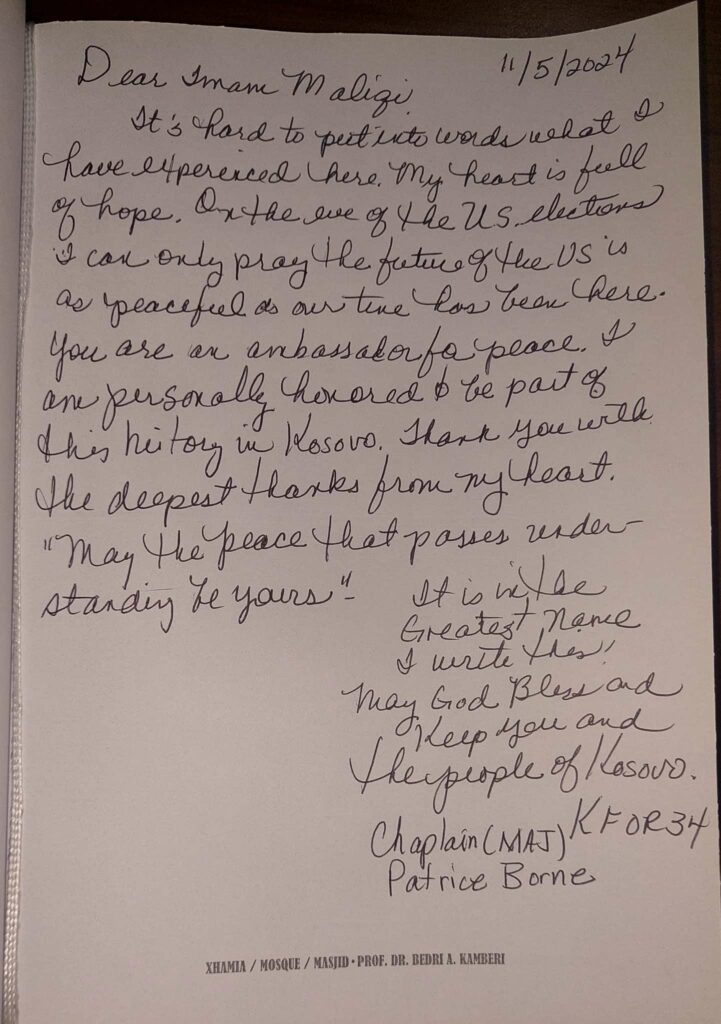 11/5/2024
Dear Imam Maliqi
It's hard to put into words what I
have experienced here. My heart is full
of hope. On the eve of the U.S. elections
I can only pray the future of the US is
as peaceful as our time has been here.
You are an ambassador fo peace. I
am personally honored to be part of
this history in Kosovo. Thank you with
the deepest thanks from my heart.
"May the peace that passes under-
standing be yours"-
It is in the
Greatest Name
I write this!
May God Bless and
Keep you and
the people of Kosovo.
Chaplain (MAJ) KFOR34
Patrice Borne
XHAMIA / MOSQUE / MASJID • PROF. DR. BEDRI A. KAMBERI